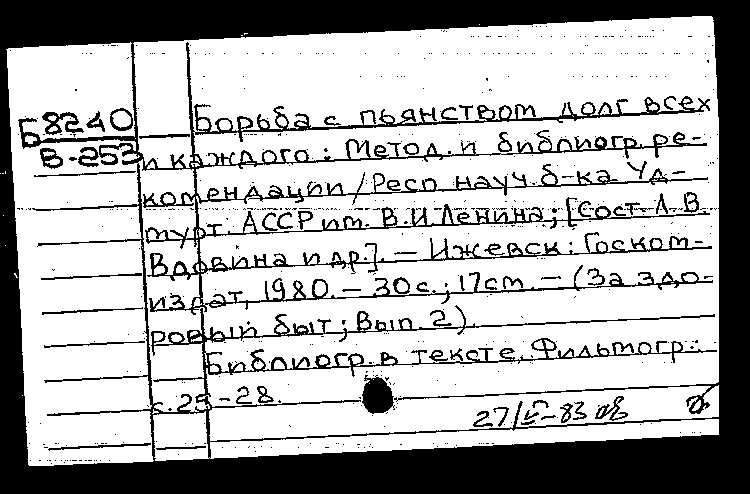 Б 8240
В-253
Борьба с пьянством долг всех
и каждого: Метод. и библиогр. ре-
комендации / Респ. науч. б-ка Уд-
мурт. АССР им. В.И. Ленина; [Сост. Л.В.
Вдовина и др.]. — Ижевск: Госком-
издат, 1980. — 30 с.; 17 см. — (За здо-
ровый быт; Вып. 2).
Библиогр. в тексте. Фильмогр.:
с. 25-28.
27/ -83